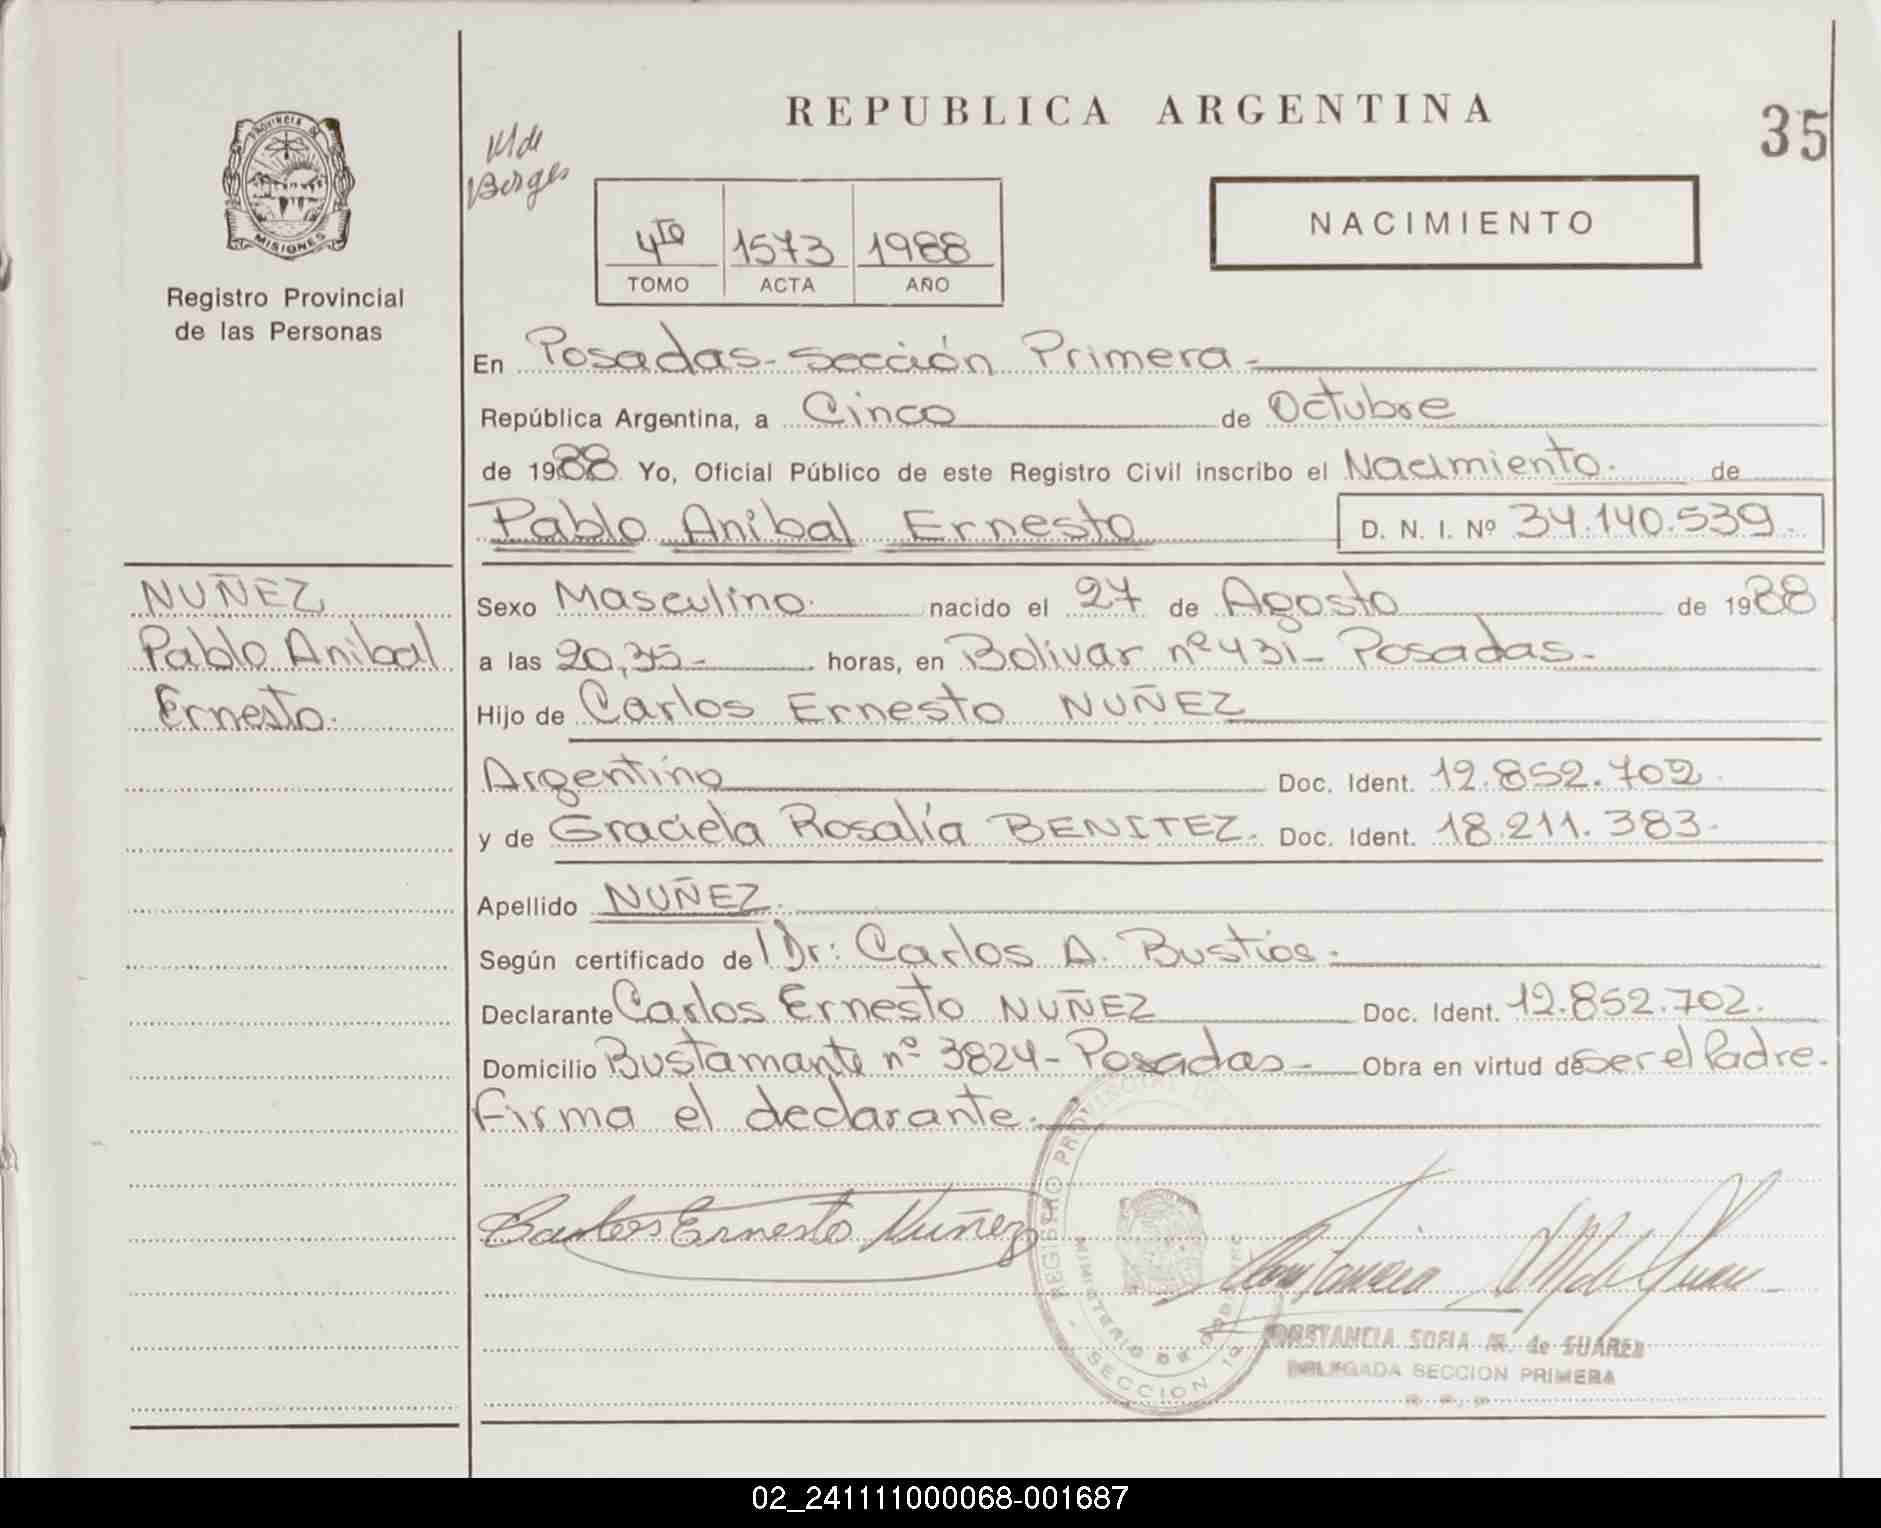 REPUBLICA ARGENTINA
35
PROVINCIA DE
MISIONES
Registro Provincial
de las Personas
M de
Berges
4to 1573 1988
TOMO ACTA AÑO
NACIMIENTO
En Posadas - Sección Primera -
República Argentina, a Cinco de Octubre
de 1988 Yo, Oficial Público de este Registro Civil inscribo el Nacimiento. de
Pablo Anibal Ernesto D. N. I. Nº 34.140.539.
NUÑEZ
Pablo Anibal
Ernesto.
Sexo Masculino. nacido el 27 de Agosto de 1988
a las 20,35- horas, en Bolivar nº 431 - Posadas-
Hijo de Carlos Ernesto NUÑEZ
Argentino Doc. Ident. 12.852.702.
y de Graciela Rosalía BENITEZ. Doc. Ident. 18.211.383.
Apellido NUÑEZ.
Según certificado del Dr: Carlos A. Bustios.
Declarante Carlos Ernesto NUÑEZ Doc. Ident. 12.852.702.
Domicilio Bustamante nº 3824 - Posadas - Obra en virtud de ser el Padre.
Firma el declarante.
Carlos Ernesto Nuñez
REGISTRO PROVINCIAL DE
MINISTERIO DE GOBIERNO
SECCION 1ª
CONSTANCIA SOFIA M. de SUAREZ
DELEGADA SECCION PRIMERA
02_241111000068-001687